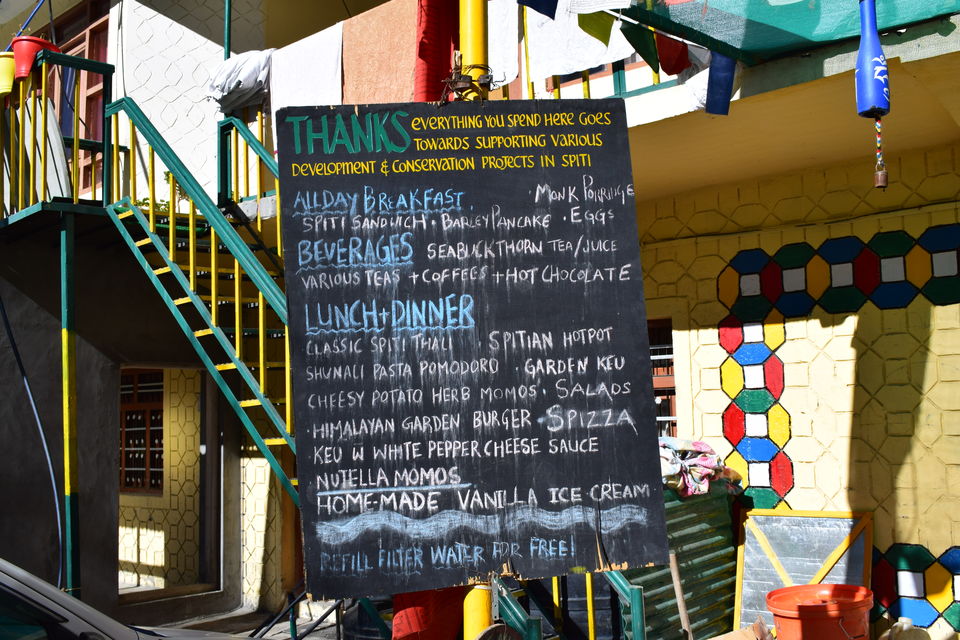 THANKS EVERYTHING YOU SPEND HERE GOES
TOWARDS SUPPORTING VARIOUS
DEVELOPMENT & CONSERVATION PROJECTS IN SPITI
ALLDAY BREAKFAST . · MONK PORRIDGE
SPITI SANDWICH · BARLEY PANCAKE · EGGS
BEVERAGES SEABUCKTHORN TEA/JUICE
VARIOUS TEAS + COFFEES + HOT CHOCOLATE
LUNCH + DINNER
CLASSIC SPITI THALI . SPITIAN HOTPOT
SHUNALI PASTA POMODORO · GARDEN KEU
CHEESY POTATO HERB MOMOS · SALADS
· HIMALAYAN GARDEN BURGER · SPIZZA
KEU W WHITE PEPPER CHEESE SAUCE
NUTELLA MOMOS
HOME-MADE VANILLA ICE CREAM
REFILL FILTER WATER FOR FREE!